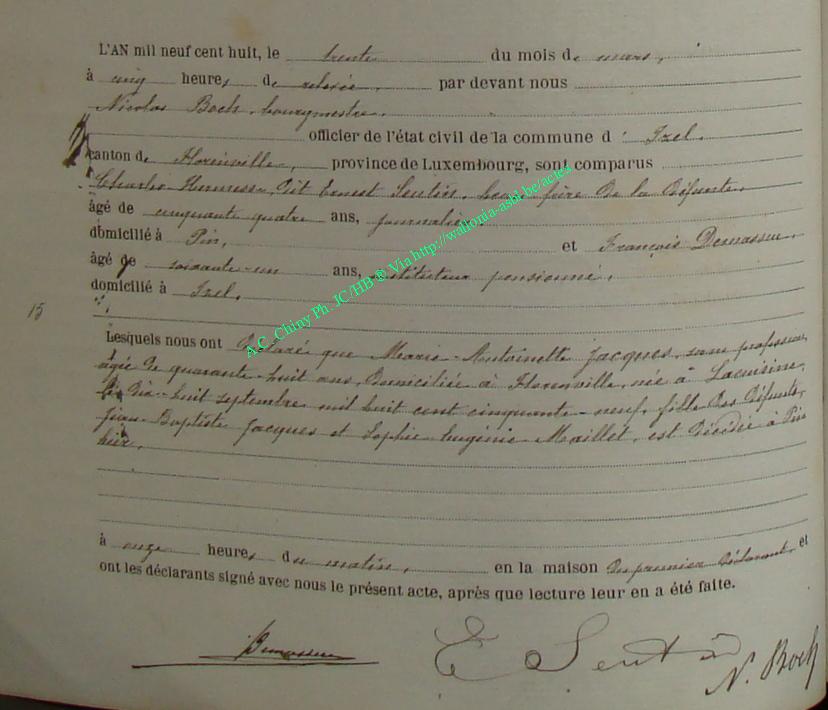 L'AN mil neuf cent huit, le trente du mois de mars,
à cinq heures de relevée, par devant nous
Nicolas Boch, bourgmestre,
officier de l'état civil de la commune d' Izel,
canton de Florenville, province de Luxembourg, sont comparus
Charles dit Ernest Sentin, beau-frère de la défunte,
âgé de cinquante quatre ans, journalier,
domicilié à Pin, et François Demasseu
âgé de soixante-un ans, instituteur pensionné,
domicilié à Izel.
15
Lesquels nous ont déclaré que Marie-Antoinette Jacques, sans profession,
âgée de quarante-huit ans, domiciliée à Florenville, née à Lacuisine,
le dix-huit septembre mil huit cent cinquante-neuf, fille des défunts,
Jean-Baptiste Jacques et Sophie Eugénie Maillet, est décédée à Pin
hier,
à onze heures du matin, en la maison du premier déclarant et
ont les déclarants signé avec nous le présent acte, après que lecture leur en a été faite.
E Sentin N. Boch
A.C. Chiny Ph. JC/HB © Via http://wallonia-asbl.be/actes